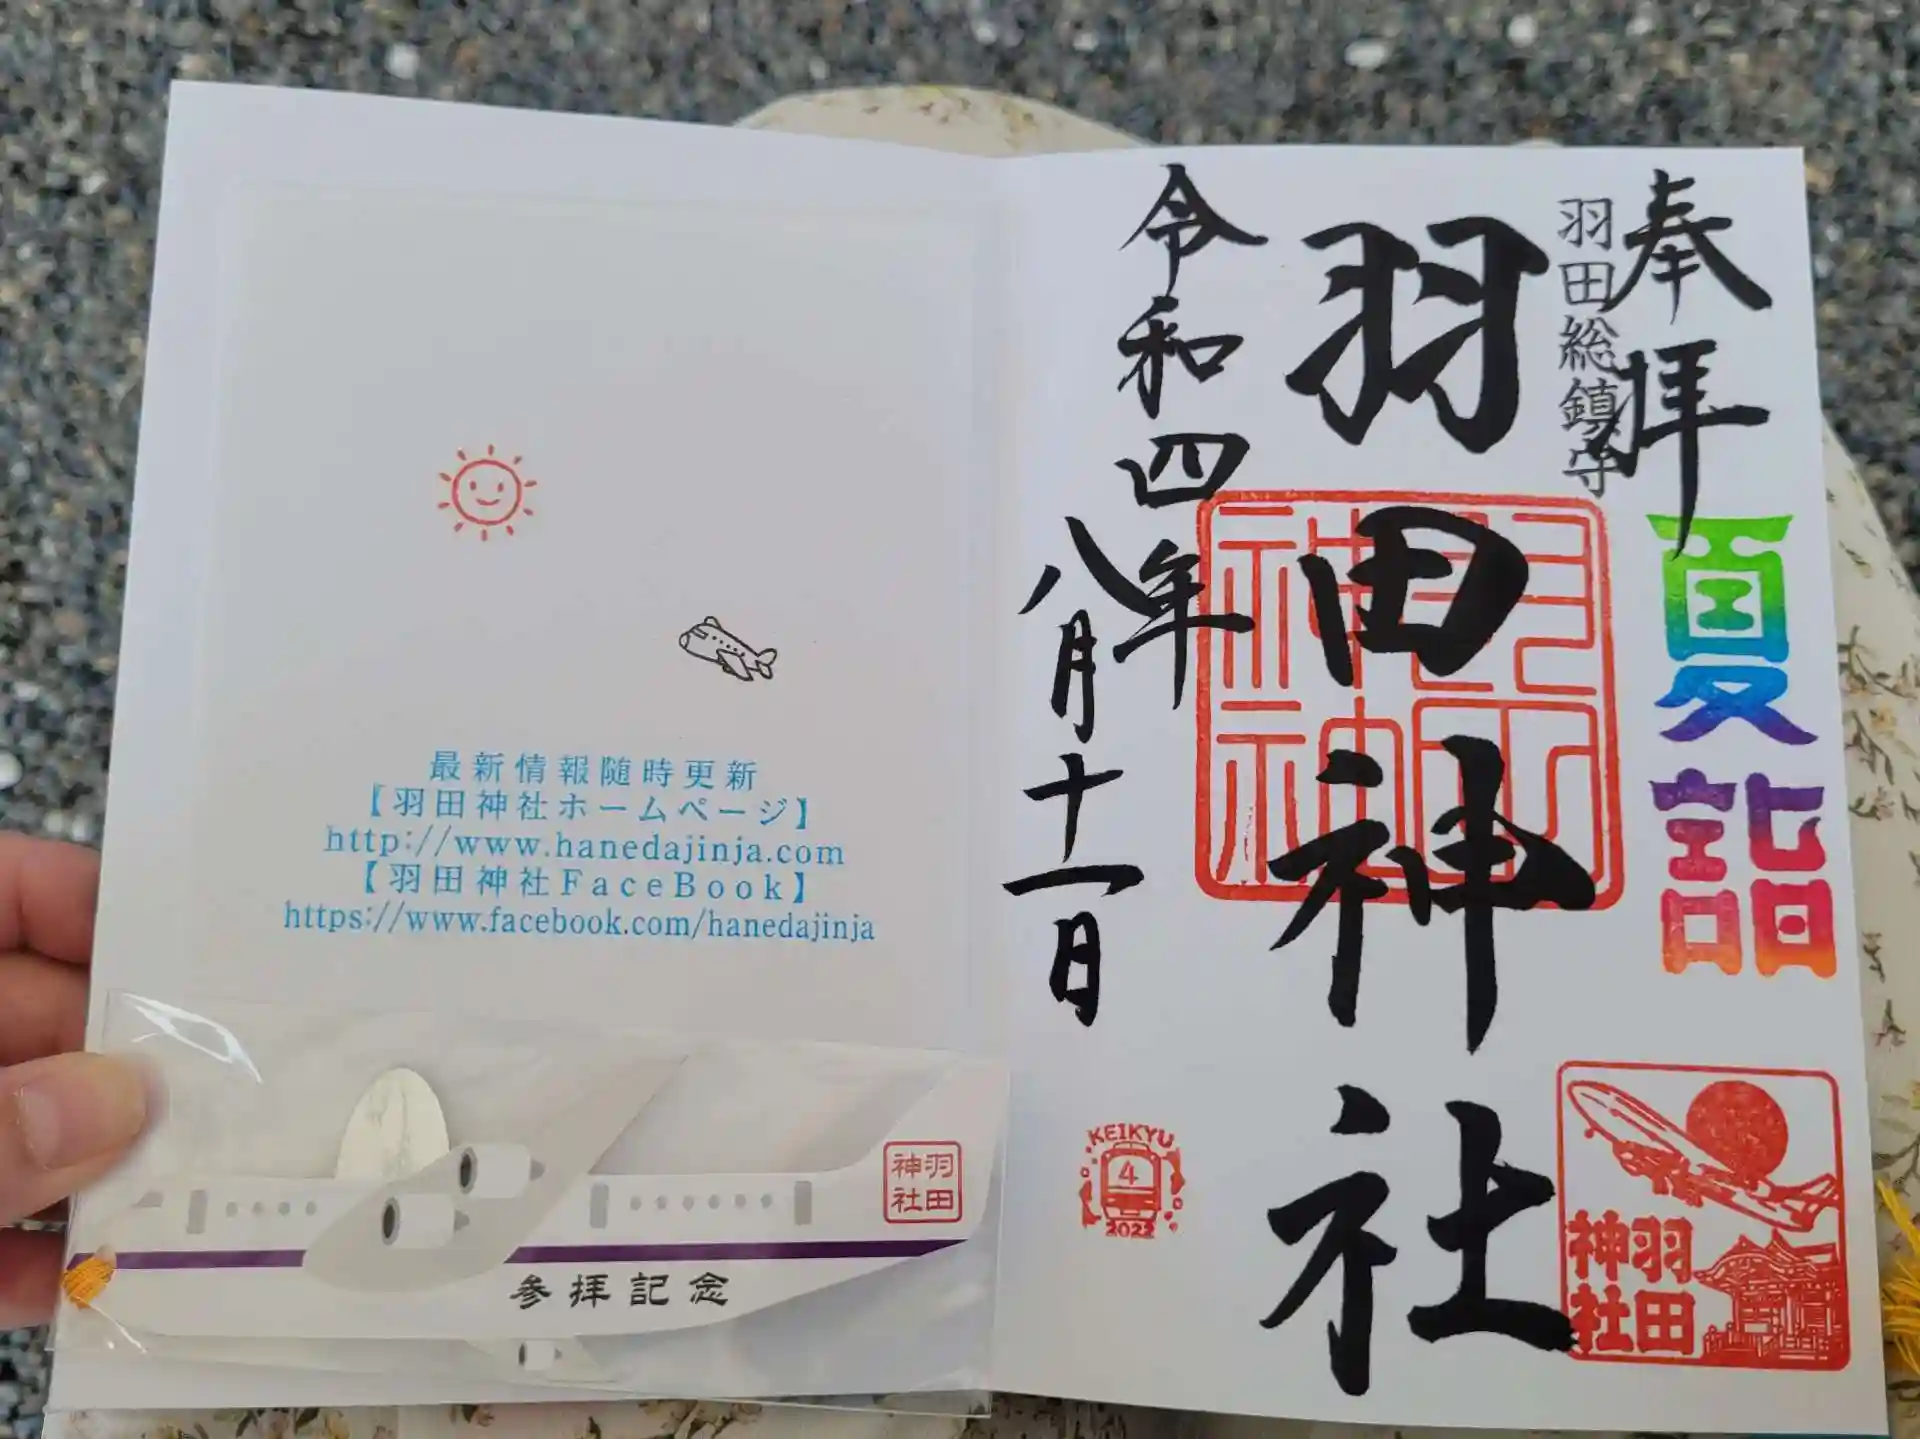 奉拝
羽田総鎮守
夏詣
羽田神社
羽田神社
令和四年
八月十一日
KEIKYU
4
2022
羽田
神社
最新情報随時更新
【羽田神社ホームページ】
http://www.hanedajinja.com
【羽田神社FaceBook】
https://www.facebook.com/hanedajinja
羽田
神社
参拝記念